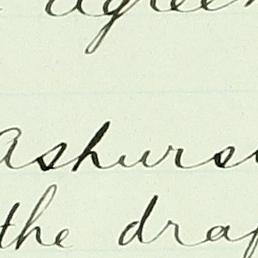 agree
Ashurs
the dra